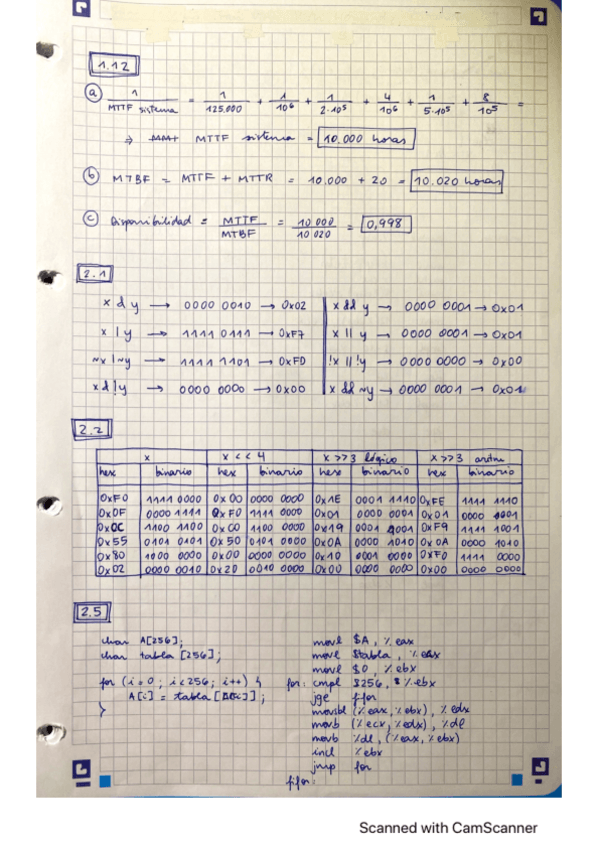 1.12
a) 1 / MTTF sistema = 1/125.000 + 1/10⁶ + 1/2·10⁵ + 4/10⁶ + 1/5·10⁵ + 8/10⁵ =
⇒ MTTF sistema = 10.000 horas
b) MTBF = MTTF + MTTR = 10.000 + 20 = 10.020 horas
c) Disponibilidad = MTTF / MTBF = 10 000 / 10 020 = 0,998
2.1
x & y → 0000 0010 → 0x02 | x && y → 0000 0001 → 0x01
x | y → 1111 0111 → 0xF7 | x || y → 0000 0001 → 0x01
~x | ~y → 1111 1101 → 0xFD | !x || !y → 0000 0000 → 0x00
x & !y → 0000 0000 → 0x00 | x && ~y → 0000 0001 → 0x01
2.2
x | x << 4 | x >> 3 lógico | x >> 3 aritm
hex | binario | hex | binario | hex | binario | hex | binario
0xF0 | 1111 0000 | 0x00 | 0000 0000 | 0x1E | 0001 1110 | 0xFE | 1111 1110
0x0F | 0000 1111 | 0xF0 | 1111 0000 | 0x01 | 0000 0001 | 0x01 | 0000 0001
0xCC | 1100 1100 | 0xC0 | 1100 0000 | 0x19 | 0001 1001 | 0xF9 | 1111 1001
0x55 | 0101 0101 | 0x50 | 0101 0000 | 0x0A | 0000 1010 | 0x0A | 0000 1010
0x80 | 1000 0000 | 0x00 | 0000 0000 | 0x10 | 0001 0000 | 0xF0 | 1111 0000
0x02 | 0000 0010 | 0x20 | 0010 0000 | 0x00 | 0000 0000 | 0x00 | 0000 0000
2.5
char A[256];
char tabla [256];
for (i=0 ; i<256; i++) {
A[i] = tabla [A[i]] ;
}
movl $A, %eax
movl $tabla, %ecx
movl $0, %ebx
for: cmpl $256, %ebx
jge fifor
movsbl (%eax, %ebx), %edx
movb (%ecx, %edx), %dl
movb %dl, (%eax, %ebx)
incl %ebx
jmp for
fifor:
Scanned with CamScanner